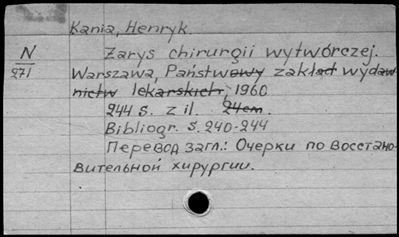 Kania, Henryk.
N Zarys chirurgii wytwórczej.
271 Warszawa, Państwowy zakład wydaw
nictw lekarskich, 1960
244 s. z il. 24cm.
Bibliogr. s. 240-244
Перевод загл.: Очерки по восстано-
вительной хирургии.